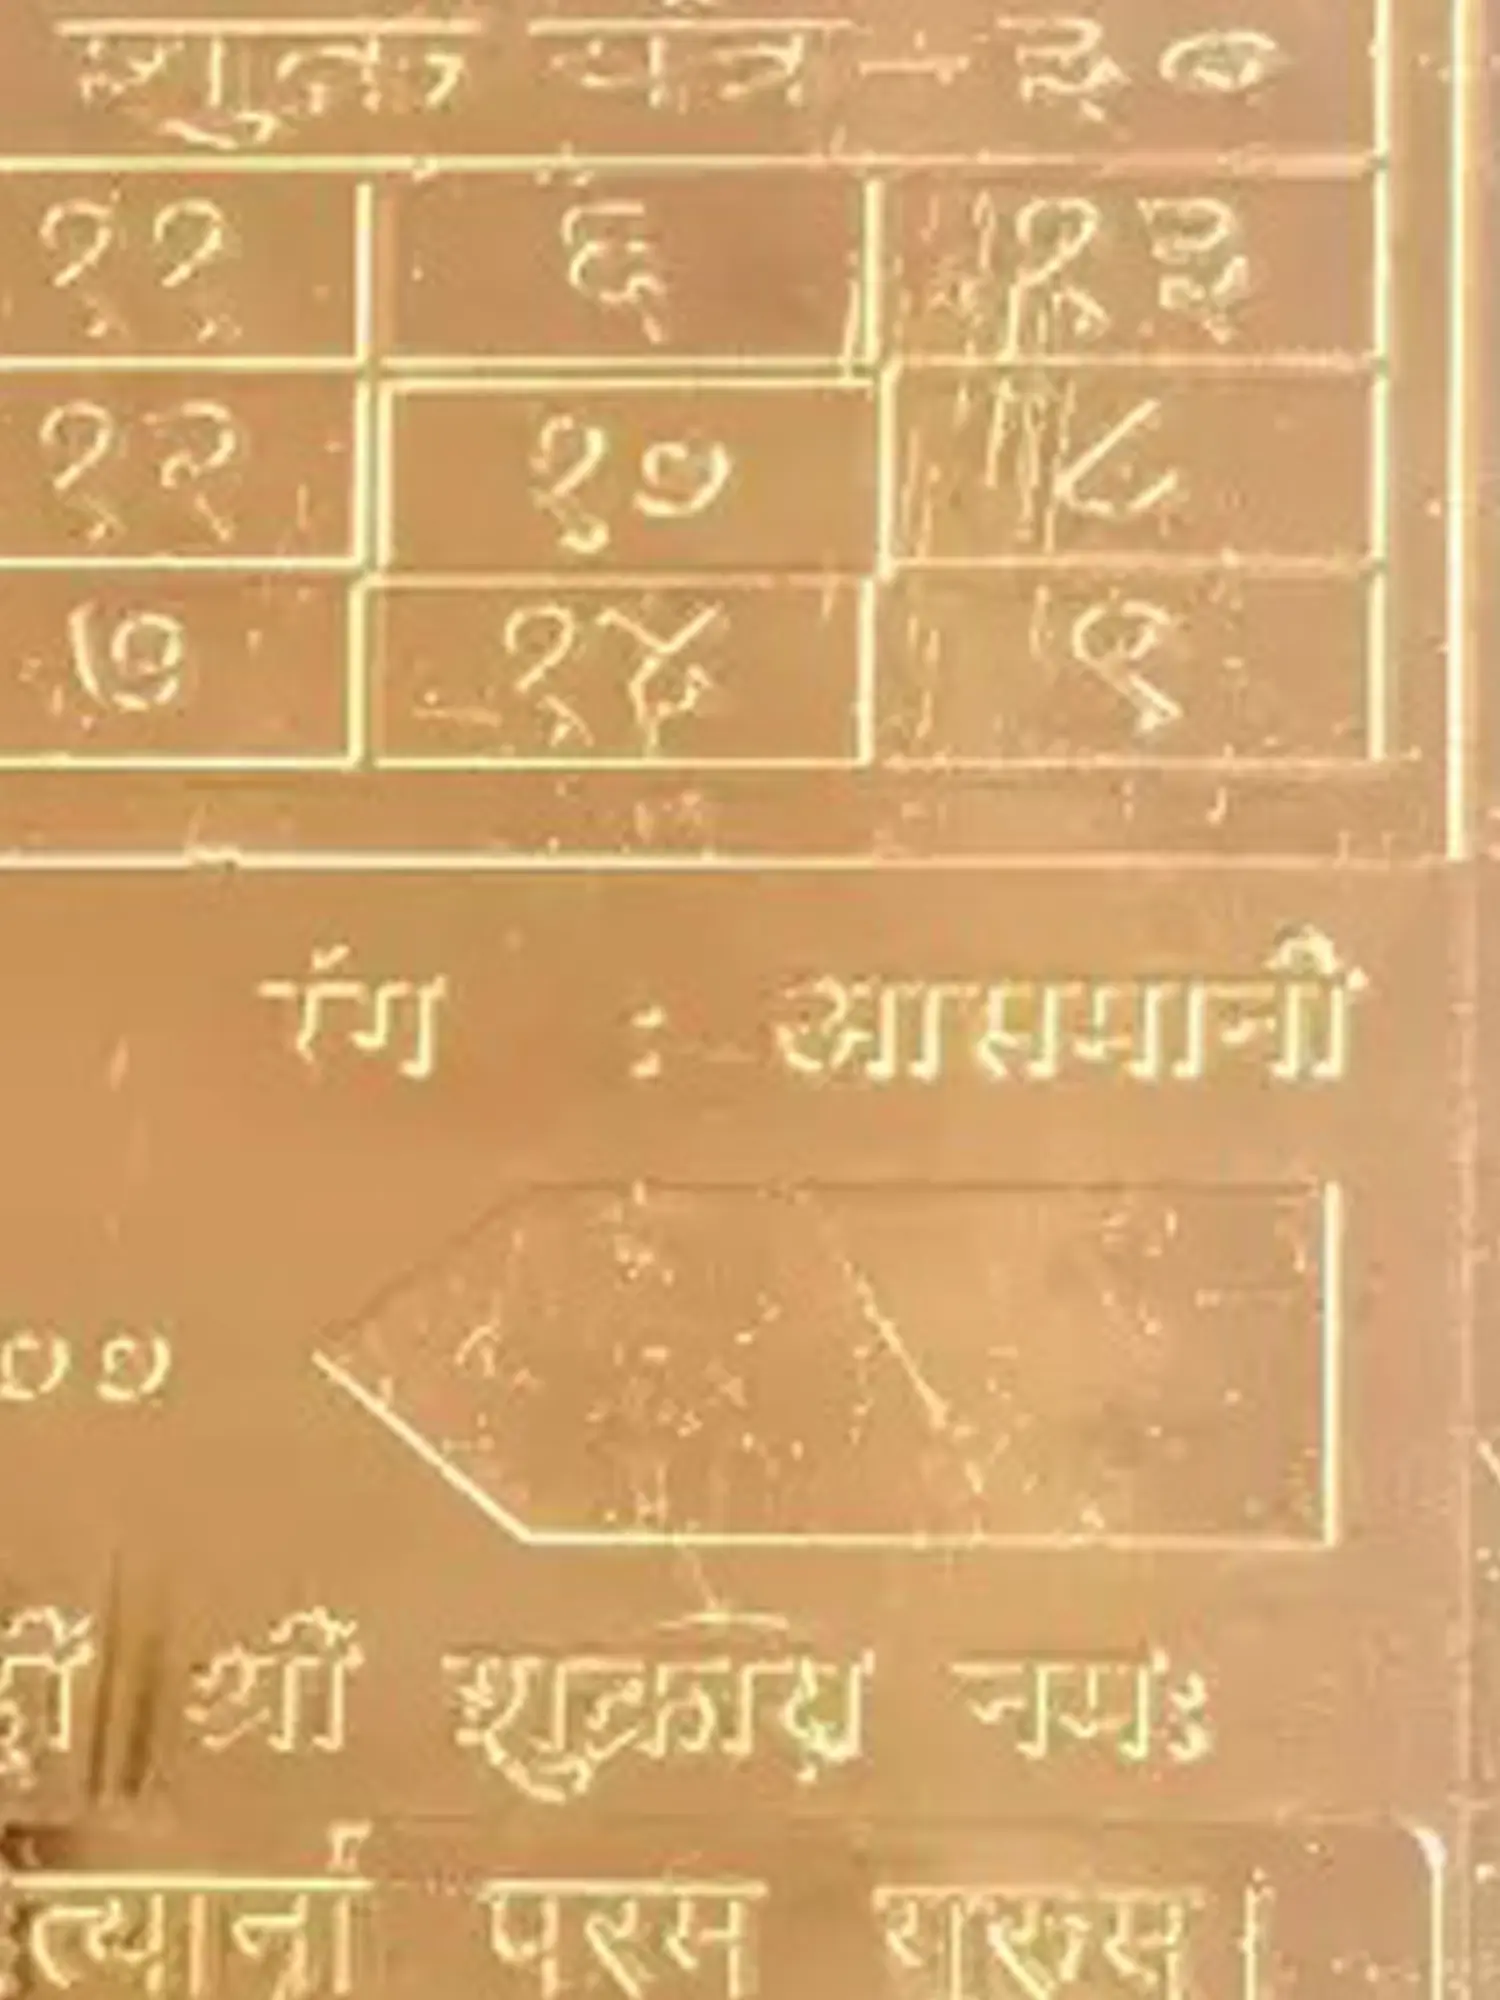 शुक्र यंत्र - ३०
११ ६ १३
१२ १० ८
७ १४ ९
रंग : आसमानी
००
ह्रीं श्रीं शुक्राय नमः
त्यानां परम गुरुम।